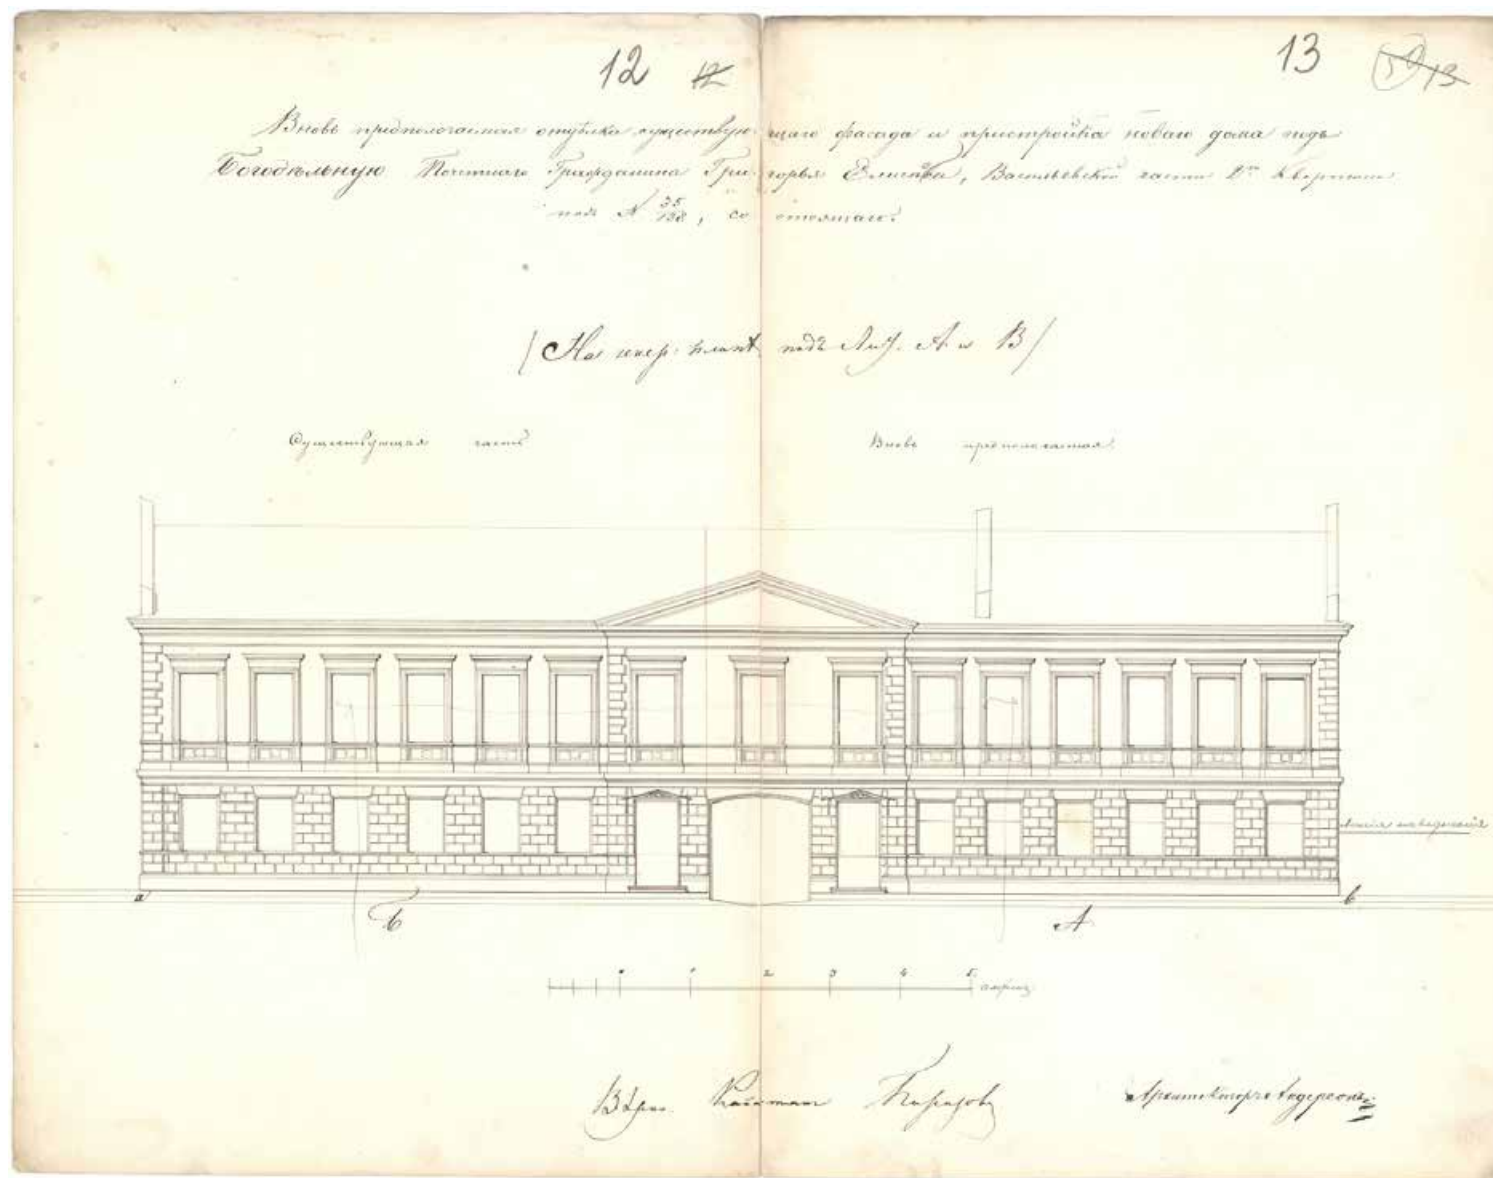 12 12
13 59 13
Вновь предпологаемая отдѣлка существующаго фасада и пристройка новаго дома подъ
Богодѣльную Почетнаго Гражданина Григорья Елисѣева, Васильевской части 2го Квартала
подъ № 35/138, состоящаго.
(На генер: планѣ подъ Лит. А и В)
Существующая часть
Вновь предпологаемая.
а
Б
А
в
1 2 3 4 5 сажень
Вѣрно. Капитанъ
Архитекторъ Андерсонъ